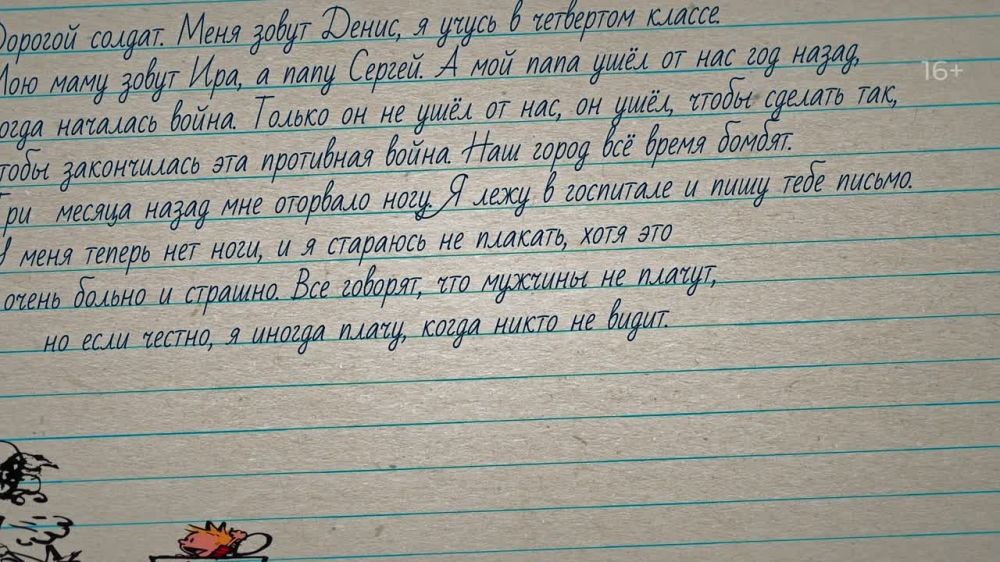 Дорогой солдат. Меня зовут Денис, я учусь в четвертом классе.
Мою маму зовут Ира, а папу Сергей. А мой папа ушёл от нас год назад,
16+
когда началась война. Только он не ушёл от нас, он ушёл, чтобы сделать так,
чтобы закончилась эта противная война. Наш город всё время бомбят.
Три месяца назад мне оторвало ногу. Я лежу в госпитале и пишу тебе письмо.
У меня теперь нет ноги, и я стараюсь не плакать, хотя это
очень больно и страшно. Все говорят, что мужчины не плачут,
но если честно, я иногда плачу, когда никто не видит.